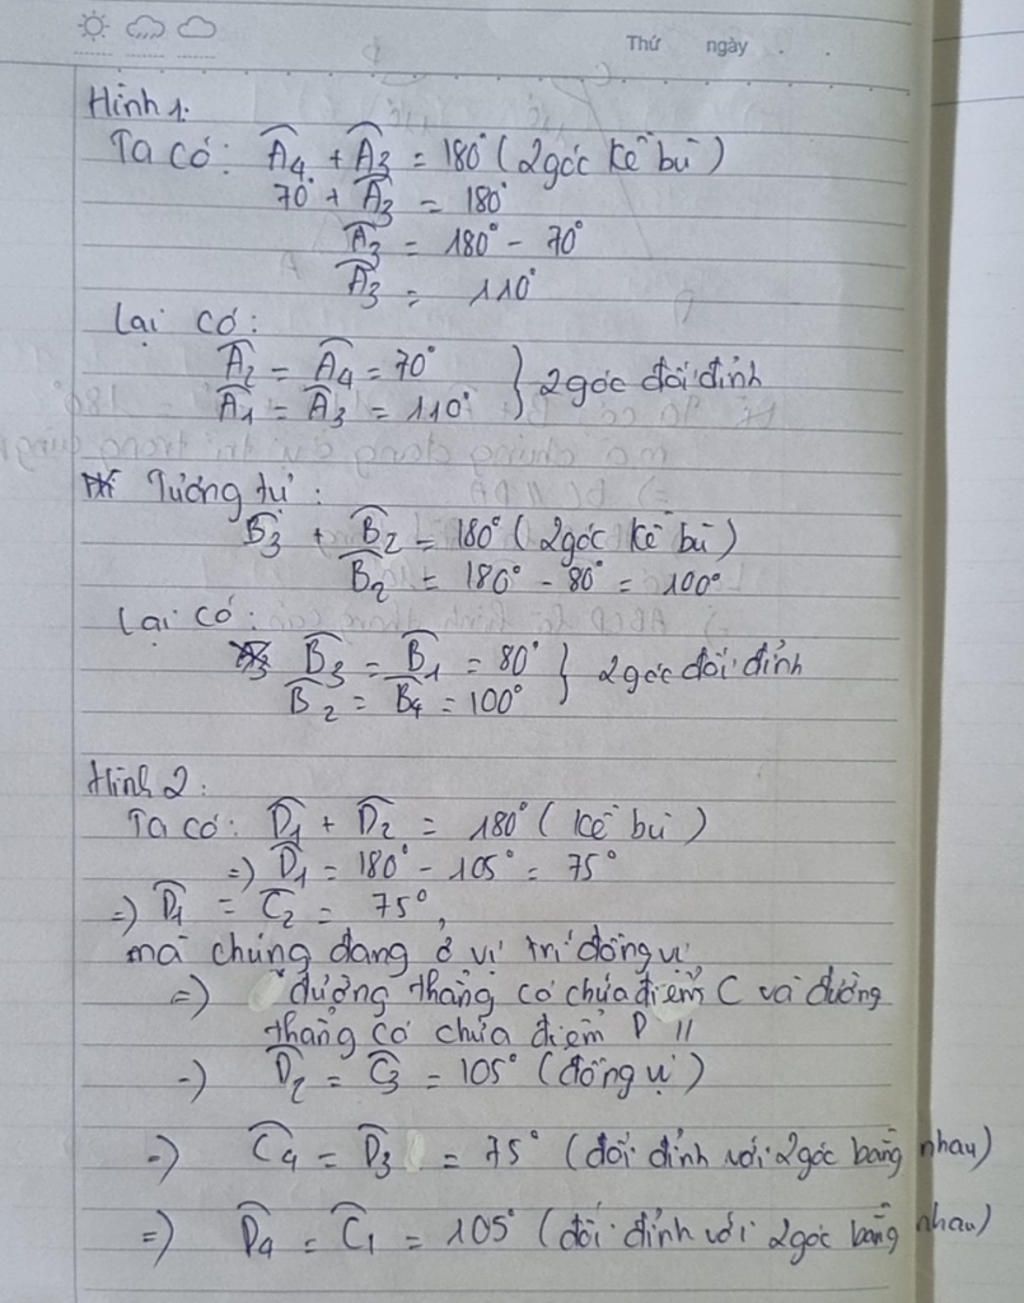 Thứ ngày . .
Hình 1.
Ta có: Â₄ + Â₃ = 180° (2 góc kề bù)
70° + Â₃ = 180°
Â₃ = 180° - 70°
Â₃ = 110°
Lại có:
Â₂ = Â₄ = 70° } 2 góc đối đỉnh
Â₁ = Â₃ = 110°
Tương tự:
B̂₃ + B̂₂ = 180° (2 góc kề bù)
B̂₂ = 180° - 80° = 100°
Lại có:
B̂₃ = B̂₁ = 80° } 2 góc đối đỉnh
B̂₂ = B̂₄ = 100°
Hình 2:
Ta có: D̂₁ + D̂₂ = 180° (kề bù)
=) D̂₁ = 180° - 105° = 75°
=) D̂₁ = Ĉ₂ = 75°,
mà chúng đang ở vị trí đồng vị
=) đường thẳng có chứa điểm C và đường
thẳng có chứa điểm D //
-) D̂₂ = Ĉ₃ = 105° (đồng vị)
=) Ĉ₄ = D̂₃ = 75° (đối đỉnh với 2 góc bằng nhau)
=) D̂₄ = Ĉ₁ = 105° (đối đỉnh với 2 góc bằng nhau)